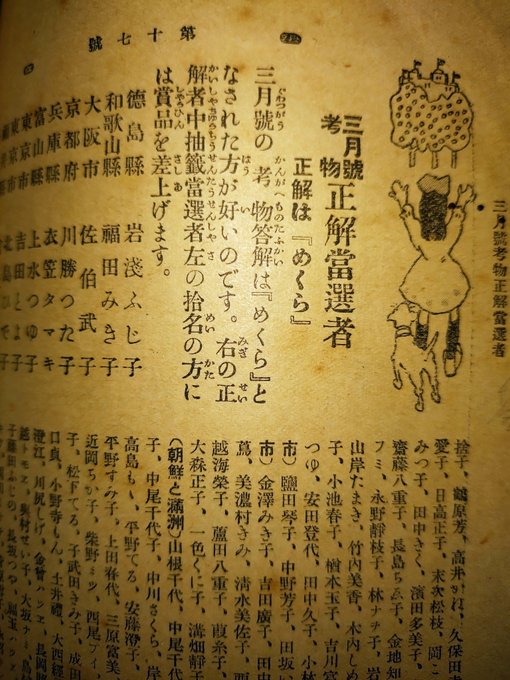 第十七號
三月號考物正解當選者
三月號考物正解當選者
正解は『めくら』
三月號の考物答解は『めくら』と
なされた方が好いのです。右の正
解者中抽籤當選者左の拾名の方に
は賞品を差上げます。
德島縣 岩淺ふじ子
和歌山縣 福田みき子
大阪市 佐伯武子
京都府 川勝つた子
兵庫縣 衣笠タマキ
富山縣 上水つゆ子
東京市 吉田とよ子
捨子、鶴原芳、高井 久保田
愛子、日高正子、末次松枝、
みつ子、田中きく、濱田多美子、
齋藤八重子、長島ちゑ子、金地知
フミ、永野靜枝子、林ナヲ子、岩
山岸たまき、竹内美香、木内しめ
子、小池春子、楢本玉子、吉川富
つゆ、安田登代、田中久子、小林
市）鹽田琴子、中野芳子、田坂
市）金澤みき子、吉田廣子、田中
蔦、美濃村きみ、清水美佐子、
越海榮子、蘆田八重子、葭糸子、
大森正子、一色くに子、溝畑靜子
（朝鮮と滿洲）山根千代、中尾千代
子、中尾千代子、中川さくら、岸
高島もゝ、平野てる、安藤澄子、
平野すみ子、上田春代、三原富美、
近岡ちか子、柴野ミツ、西尾アイ、
子、松下てる、子武田きみ子、成田
口貞、小野寺もん、土井禮、大西經
澄江、川尻しげ、金曾ハシヱ、長岡